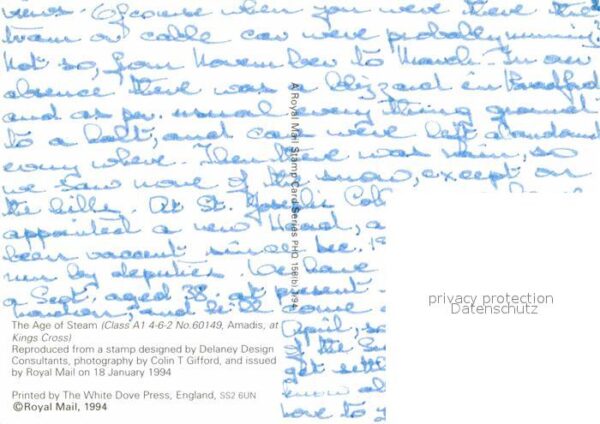 views. Of course when you were there the
tram or cable car were probably running
Not so, from November to March. In our
absence there was a blizzard in Bradford
and as per usual every thing ground
to a halt, and cars were left abandoned
every where. Then there was rain, so
we saw none of the snow, except on
the hills. At St. Joseph's Col
appointed a new Head, a
been vacant since Dec. 19
run by deputies. We have
a Sept. aged 38, at present
and he'll come
April, so
of the
get settl
know
love to y
A Royal Mail Stamp Card Series PHQ 159(b) 1/94
The Age of Steam (Class A1 4-6-2 No.60149, Amadis, at
Kings Cross)
Reproduced from a stamp designed by Delaney Design
Consultants, photography by Colin T Gifford, and issued
by Royal Mail on 18 January 1994
Printed by The White Dove Press, England, SS2 6UN
©Royal Mail, 1994
privacy protection
Datenschutz